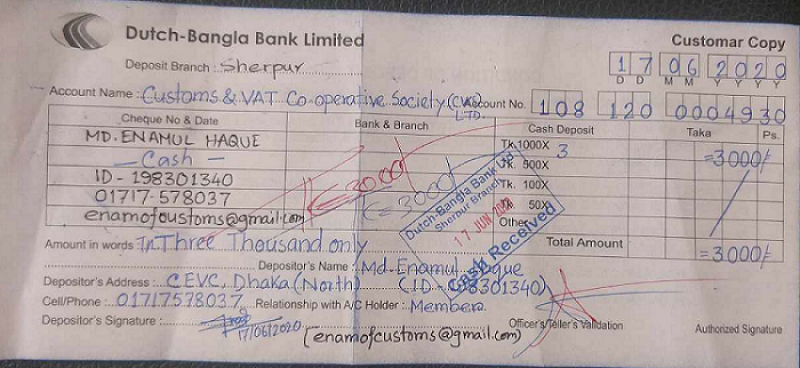 Dutch-Bangla Bank Limited
Customar Copy
Deposit Branch : Sherpur
17 06 2020
D D M M Y Y Y Y
Account Name : Customs & VAT Co-operative Society (CVCS) LTD. Account No. 108 120 0004930
Cheque No & Date Bank & Branch Cash Deposit Taka Ps.
MD. ENAMUL HAQUE Tk.1000X 3 =3000/-
- Cash - Tk. 500X
ID - 198301340 Tk. 100X
01717-578037 Tk. 50X
enamofcustoms@gmail.com Other
Tk=3000/-
Tk=3000/-
Dutch-Bangla Bank Ltd
Sherpur Branch
17 JUN 2020
Cash Received
Amount in words Tk. Three Thousand only Total Amount =3000/-
Depositor's Name : Md. Enamul Haque
Depositor's Address : CEVC, Dhaka (North) (ID-198301340)
Cell/Phone : 01717578037 Relationship with A/C Holder : Member
Depositor's Signature : 17/06/2020
(enamofcustoms@gmail.com)
Officer's/Teller's Validation
Authorized Signature